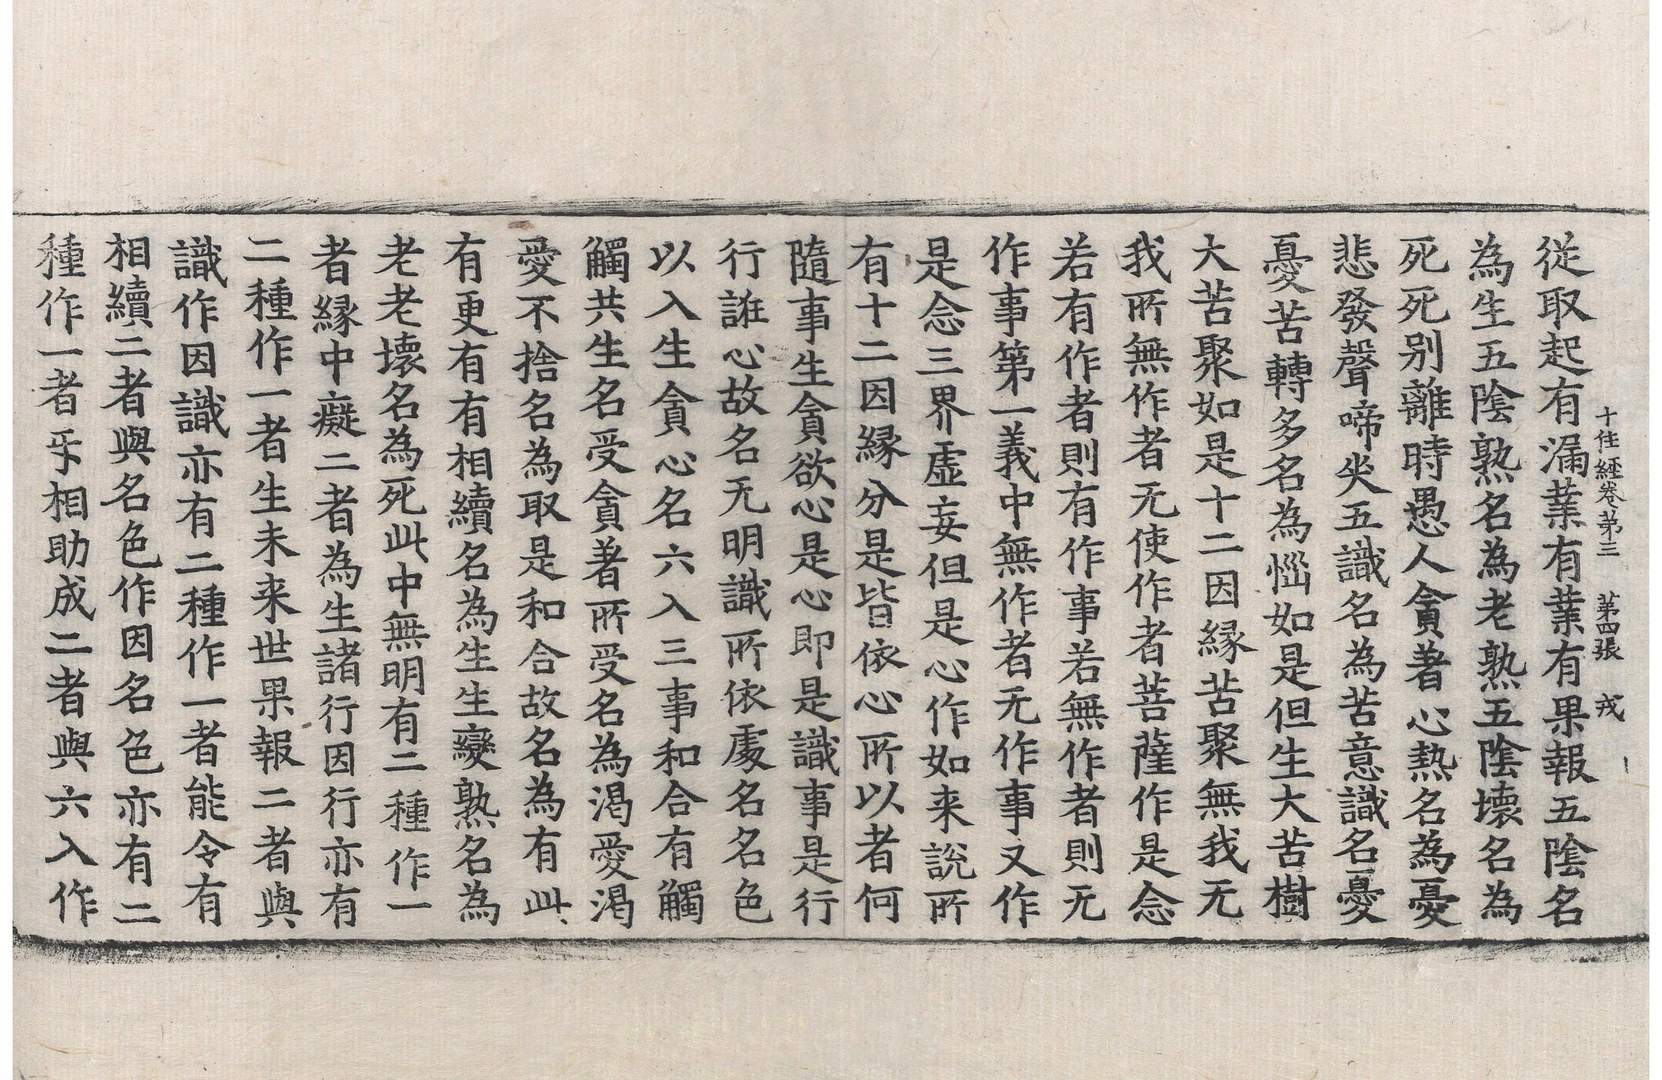 十住經卷第三　第四張　戎
從取起有漏業有業有果報五陰名
為生五陰熟名為老熟五陰壞名為
死死別離時愚人貪著心熱名為憂
悲發聲啼哭五識名為苦意識名憂
憂苦轉多名為惱如是但生大苦樹
大苦聚如是十二因緣苦聚無我无
我所無作者无使作者菩薩作是念
若有作者則有作事若無作者則无
作事第一義中無作者无作事又作
是念三界虛妄但是心作如来說所
有十二因緣分是皆依心所以者何
隨事生貪欲心是心即是識事是行
行誑心故名无明識所依處名名色
以入生貪心名六入三事和合有觸
觸共生名受貪著所受名為渴愛渴
愛不捨名為取是和合故名為有此
有更有有相續名為生生變熟名為
老老壞名為死此中無明有二種作一
者緣中癡二者為生諸行因行亦有
二種作一者生未来世果報二者與
識作因識亦有二種作一者能令有
相續二者與名色作因名色亦有二
種作一者乎相助成二者與六入作